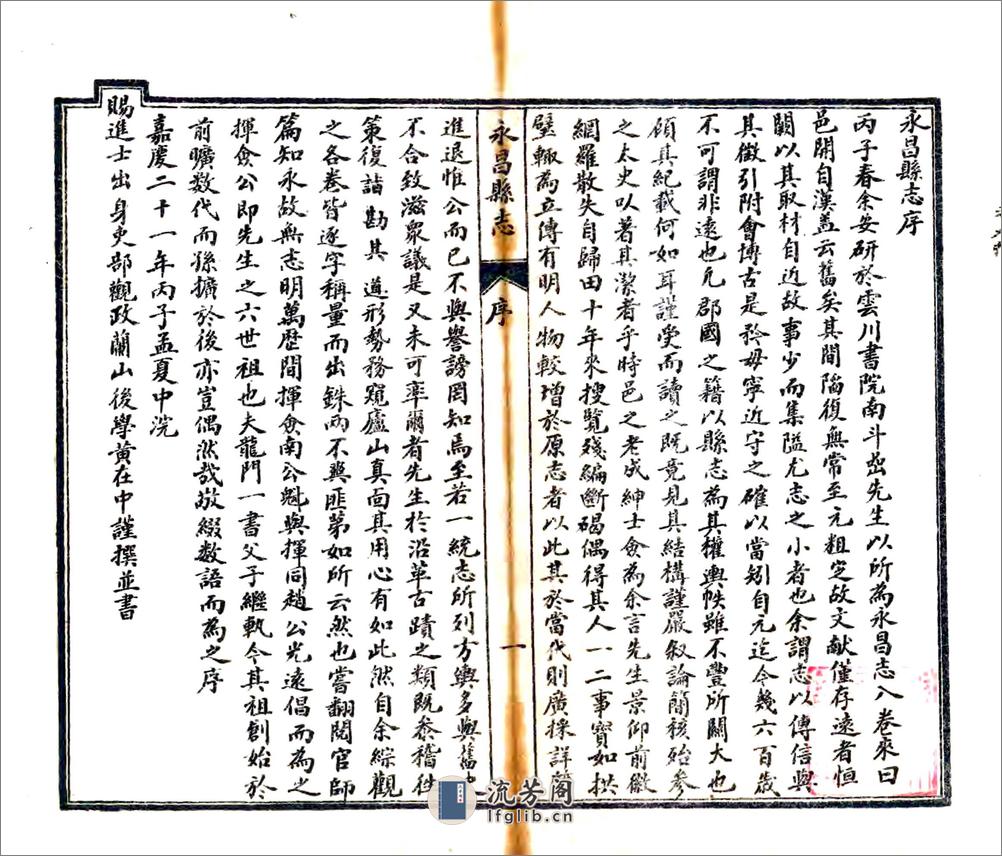 永昌縣志序
丙子春余安研於雲川書院南斗嵒先生以所為永昌志八卷來曰
邑開自漢盖云舊矣其間陷復無常至元粗定故文献僅存遠者恒
闕以其取材自近故事少而集隘尤志之小者也余謂志以傳信與
其徵引附會博古是矜毋寧近守之確以當矧自元迄今幾六百歲
不可謂非遠也凡郡國之籍以縣志為其權輿帙雖不豐所關大也
顧其紀載何如耳謹受而讀之既竟見其結構謹嚴叙論簡核殆參
之太史以著其潔者乎時邑之老成紳士僉為余言先生景仰前徽
網羅散失自歸田十年來搜覽殘編斷碣偶得其人一二事實如拱
璧輙為立傳有明人物較增於原志者以此其於當代則廣採詳
永昌縣志
序
一
進退惟公而已不與譽謗罔知焉至若一統志所列方輿多與舊
不合致滋眾議是又未可率爾者先生於沿革古蹟之類既叅稽往
策復詣勘其道形勢務窺廬山真面其用心有如此然自余綜觀
之各卷皆逐字稱量而出銖两不爽匪第如所云然也嘗翻閱官師
篇知永故無志明萬歷間揮僉南公魁與揮同趙公光遠倡而為之
揮僉公即先生之六世祖也夫龍門一書父子繼軌今其祖創始於
前曠数代而孫擴於後亦豈偶然哉敬綴数語而為之序
嘉慶二十一年丙子孟夏中浣
賜進士出身吏部觀政蘭山後學黄在中謹撰並書
流芳阁
lfglib.cn